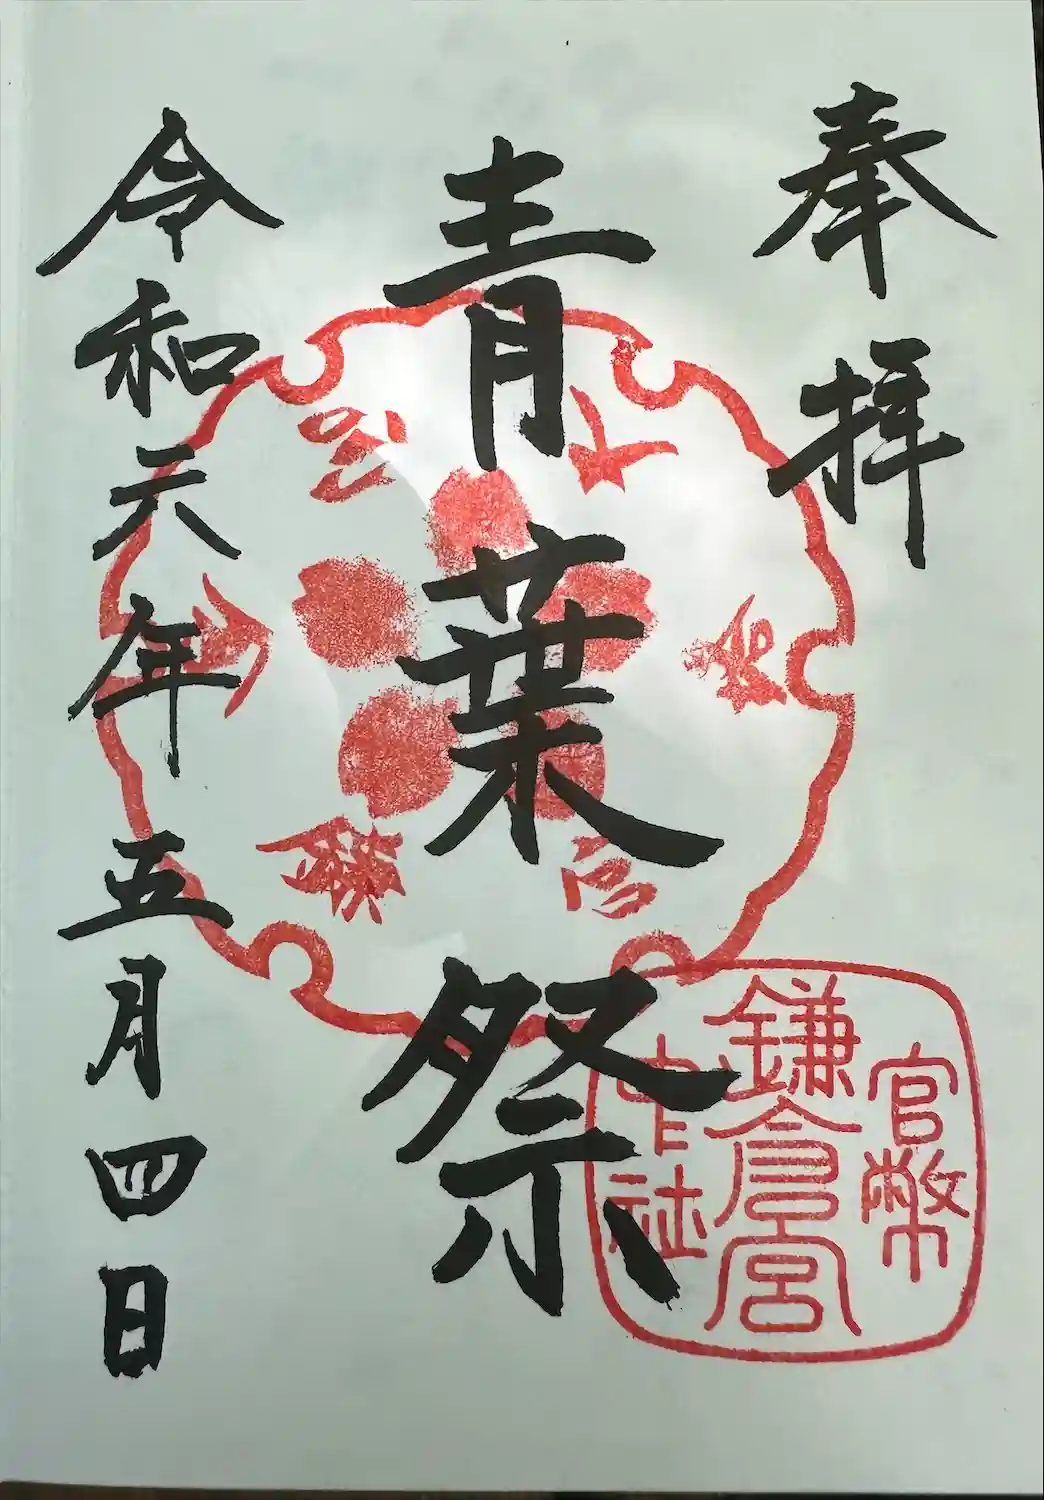 奉拝
青葉祭
令和元年五月四日
官幣
鎌倉宮
中社